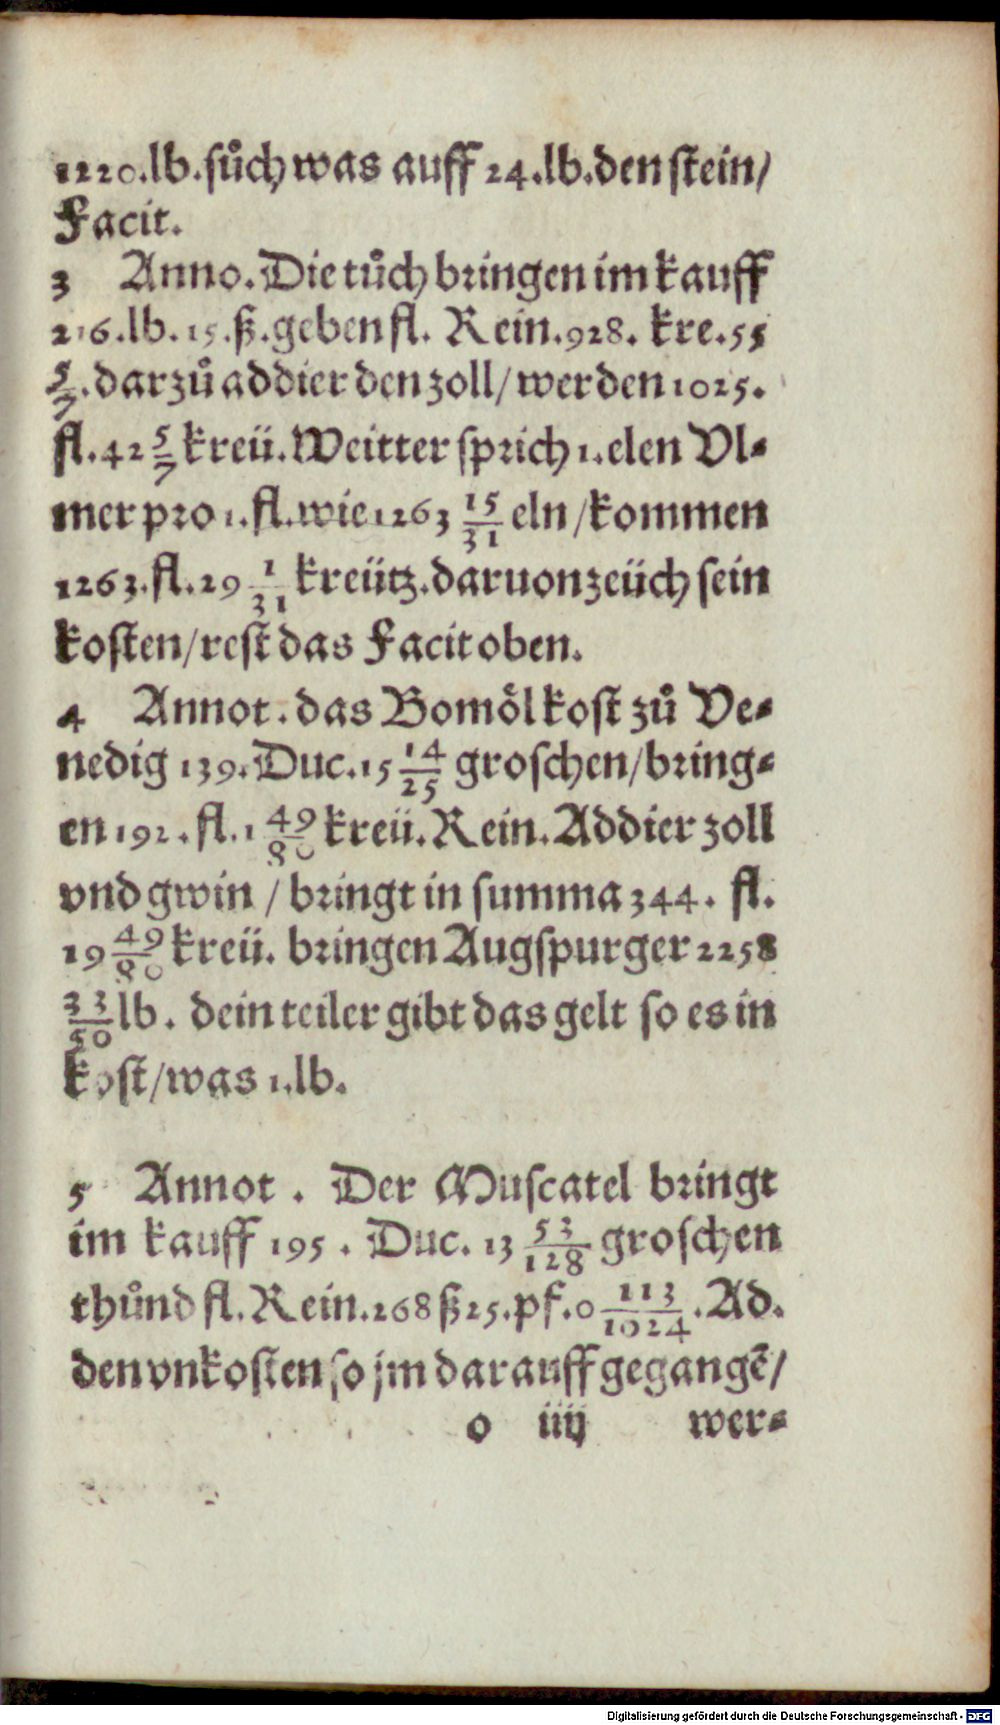 1220.lb.sůch was auff 24.lb.den stein/
Facit.
3 Anno. Die tůch bringen im kauff
216.lb.15.ß.geben fl. Rein.928. kre.55
5/7.darzů addier den zoll/werden 1025.
fl.42 5/7 kreü.Weitter sprich 1.elen Vl⸗
mer pro 1.fl.wie 1263 15/31 eln/kommen
1263.fl.29 1/31 kreütz.daruon zeüch sein
kosten/rest das Facit oben.
4 Annot.das Bomöl kost zů Ve⸗
nedig 139.Duc.15 14/25 groschen/bring⸗
en 192.fl.1 49/80 kreü.Rein.Addier zoll
vnd gwin / bringt in summa 344. fl.
19 49/80 kreü. bringen Augspurger 2258
33/50 lb. dein teiler gibt das gelt so es in
kost/was 1.lb.
5 Annot . Der Muscatel bringt
im kauff 195 . Duc. 13 53/128 groschen
thůnd fl.Rein.268 ß 25.pf.0 113/1024.Ad.
den vnkosten so jm darauff gegangẽ/
o iiij wer⸗
Digitalisierung gefördert durch die Deutsche Forschungsgemeinschaft - DFG